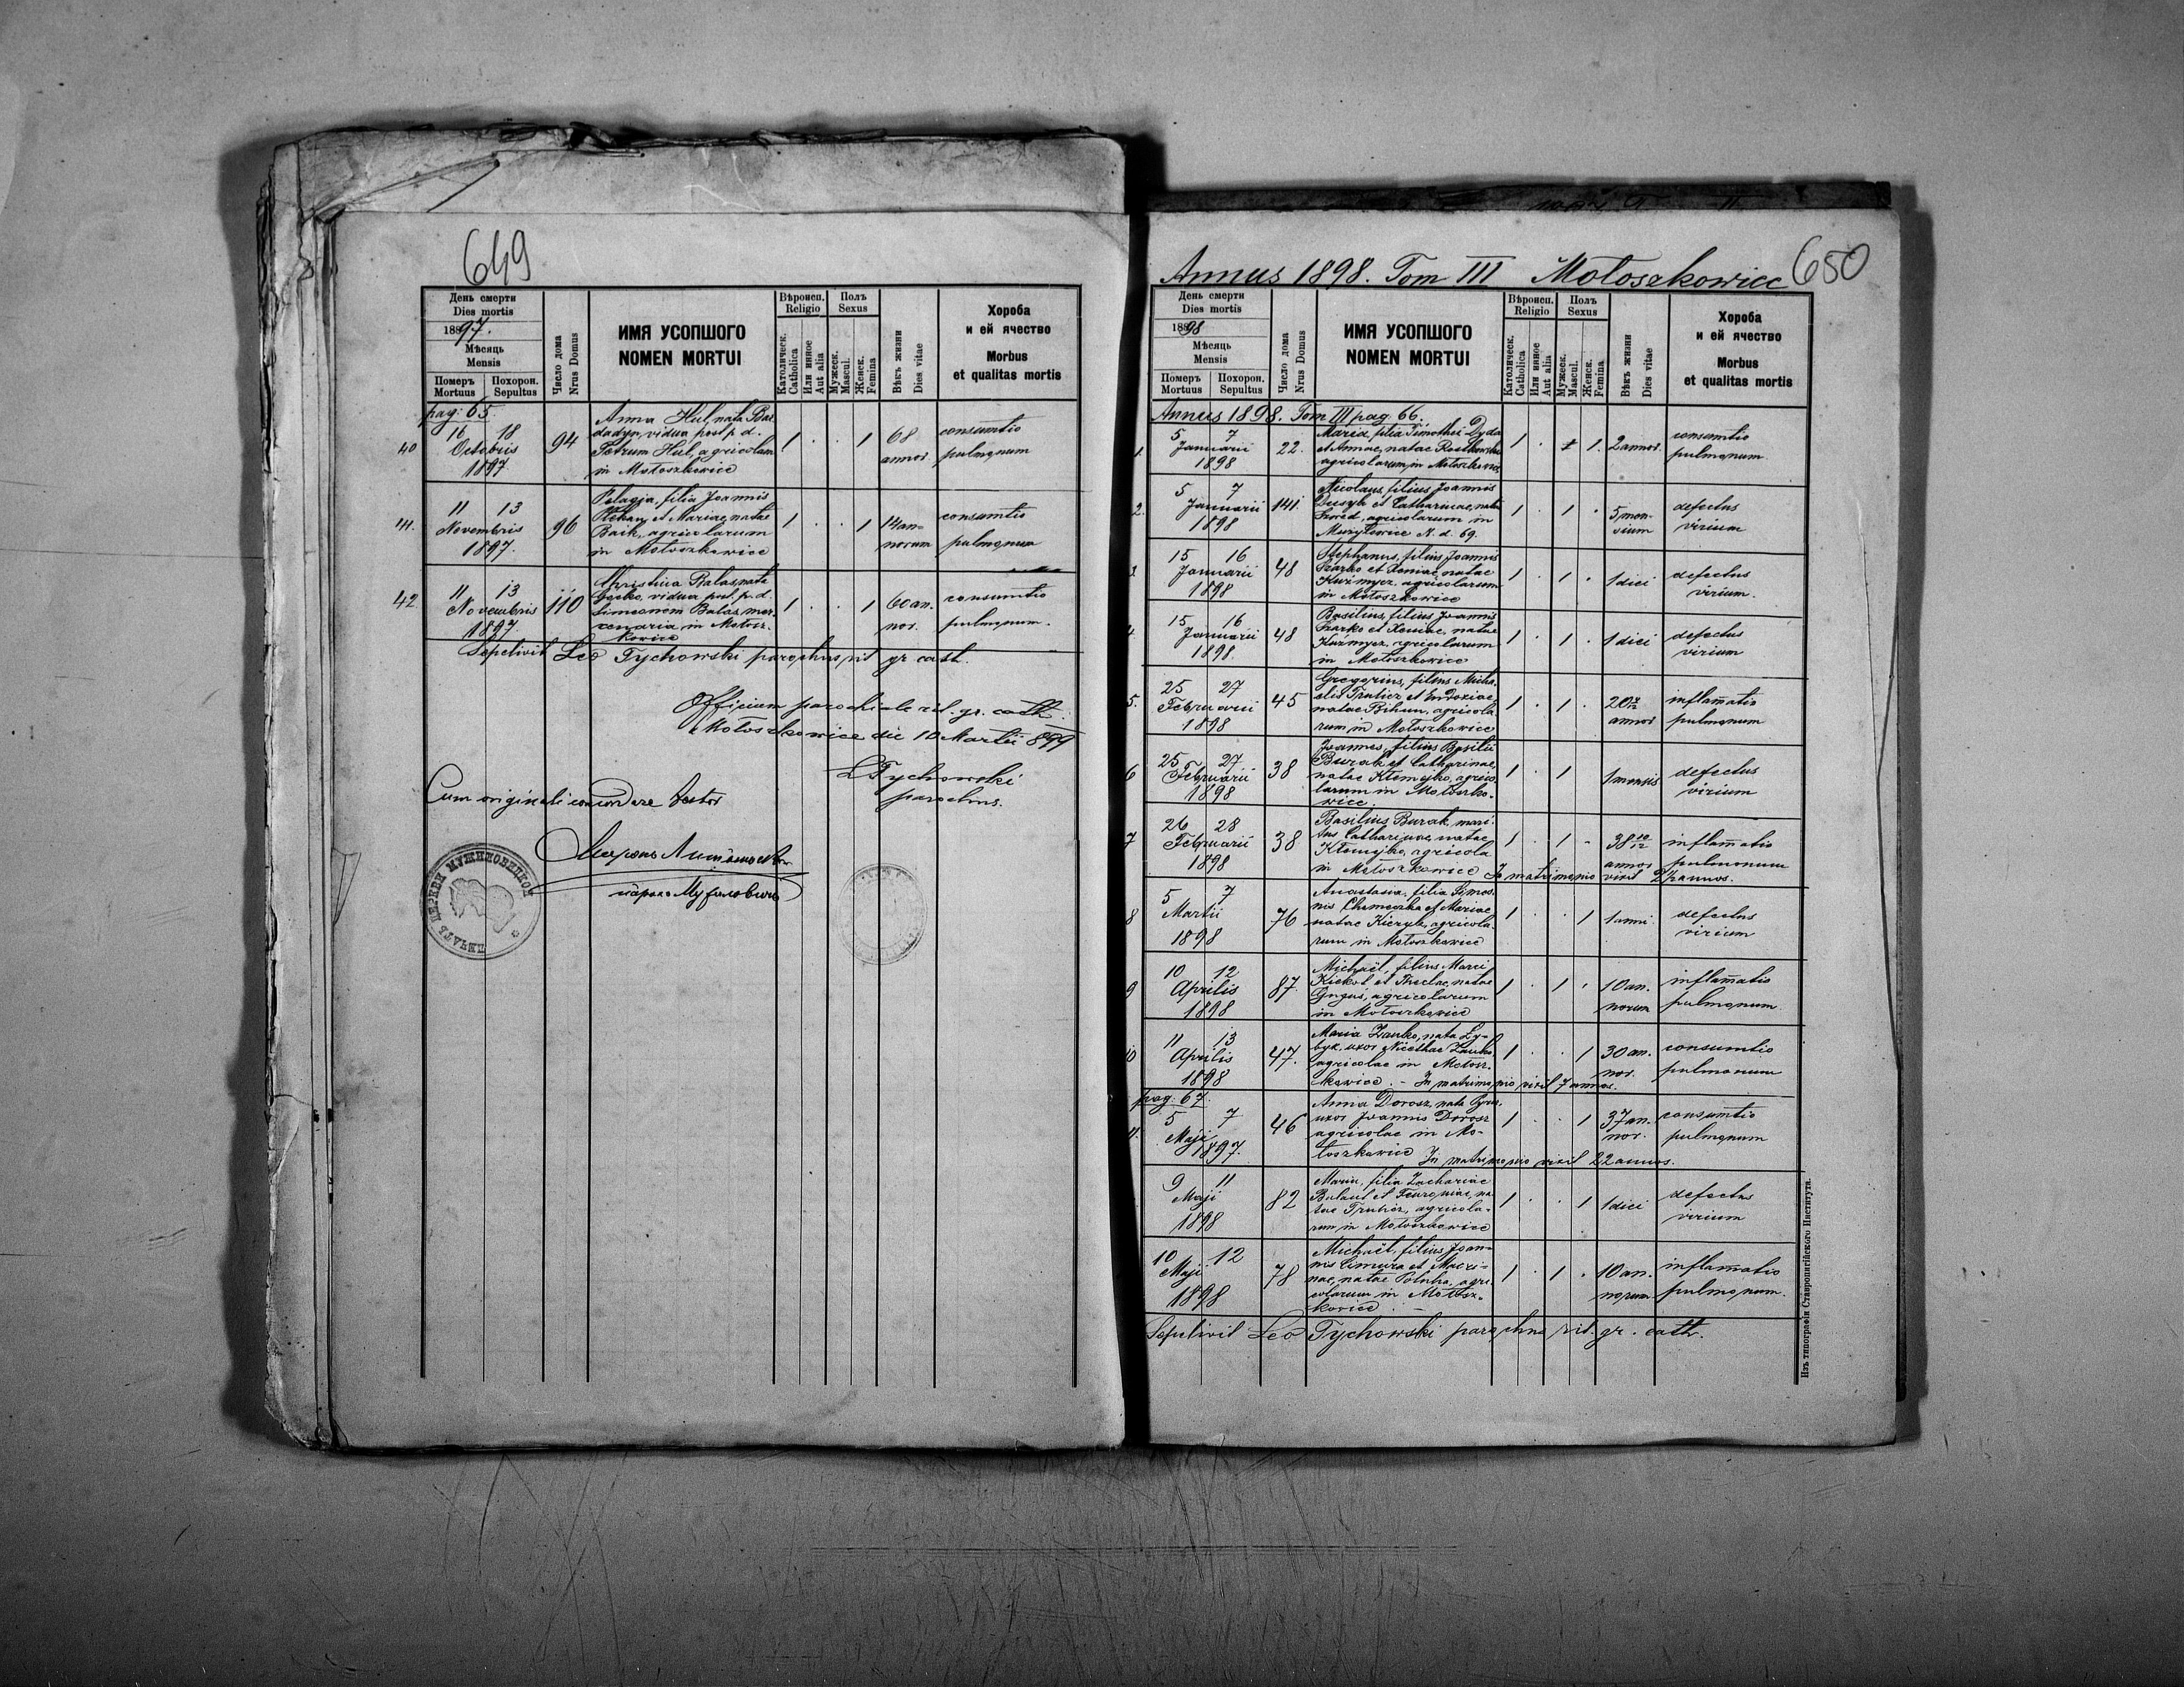 649
День смерти
Dies mortis
1897.
Мѣсяць
Mensis
Померъ Похорон.
Mortuus Sepultus
Число дома
Nrus Domus
ИМЯ УСОПШОГО
NOMEN MORTUI
Вѣроисп.
Religio
Католическ.
Catholica
Или инное
Aut alia
Полъ
Sexus
Мужеск.
Mascul.
Женск.
Femina
Вѣкъ жизни
Dies vitae
Хороба
и ей ячество
Morbus
et qualitas mortis
pag: 65.
40 16 18 Octobris 1897 94
Anna Hul, nata Bas
dadyn, vidua post p. d.
Petrum Hul, agricolam
in Motoszkowice
1 . . 1 68 annos consumtio pulmonum
41. 11 13 Novembris 1897. 96
Pelagia, filia Joannis
et Mariae, natae
Baik, agricolarum
in Motoszkowice
1 . . 1 14 annorum consumtio pulmonum
42. 11 13 Novembris 1897 110
Christina Balas, nata
Gocko, vidua post. p. d.
Simeonem Balas, mer-
cenaria in Motosz-
kowice
1 . . 1 60 an. nos. consumtio pulmonum.
Sepelivit Leo Tychowski parochus rit gr cath.
Officium parochiale rit. gr. cath.
Motoszkowice die 10 Martii 899
L Tychowski
parochus.
Cum originali concordare testor
ПЕЧАТЬ ЦЕРКВИ МУЖИЛОВИЦКОЙ
650
Annus 1898. Tom III Motoszkowice
День смерти
Dies mortis
1898
Мѣсяць
Mensis
Померъ Похорон.
Mortuus Sepultus
Число дома
Nrus Domus
ИМЯ УСОПШОГО
NOMEN MORTUI
Вѣроисп.
Religio
Католическ.
Catholica
Или инное
Aut alia
Полъ
Sexus
Мужеск.
Mascul.
Женск.
Femina
Вѣкъ жизни
Dies vitae
Хороба
и ей ячество
Morbus
et qualitas mortis
Annus 1898. Tom III pag. 66.
1. 5 7 Januarii 1898 22.
Maria, filia Timothei Dyda
et Annae, natae
agricolarum in Motoszkowice
1 . 1 1. 2 annos. consumtio pulmonum.
2. 5 7 Januarii 1898 141.
Nicolaus, filius Joannis
Dusyk et Catharinae, natae
Szwed, agricolarum in
Muzylowice N. d. 69.
1 . 1 . 5 mensium defectus virium
3 15 16 Januarii 1898 48
Stephanus, filius Joannis
Szarko et Xeniae, natae
Kuzmycz, agricolarum
in Motoszkowice
1 . 1 . 1 diei defectus virium.
4. 15 16 Januarii 1898. 48
Basilius, filius Joannis
Szarko et Xeniae, natae
Kuzmycz, agricolarum
in Motoszkowice
1 . 1 . 1 diei defectus virium
5. 25 27 Februarii 1898 45
Gregorius, filius Micha-
elis Truticz et Eudoxiae,
natae Bihun, agricola
rum in Motoszkowice
1 . 1 . 20 annos inflammatio pulmonum
6 25 27 Februarii 1898 38
Joannes, filius Basilii
Burak et Catharinae,
natae Klemejko, agrico-
larum in Motoszko-
wice.
1 . 1 1 mensis defectus virium
7 26 28 Februarii 1898 38
Basilius Burak, mari-
tus Catharinae, natae
Klemejko, agricola
in Motoszkowice In matrimonio vixit annos.
1 . 1 . 38 10/12 annos inflammatio pulmonum
8 5 7 Martii 1898 76
Anastasia, filia Simeo-
nis et Mariae
natae Kieryk, agricola-
rum in Motoszkowice
1 . . 1 1 anni defectus virium
9 10 12 Aprilis 1898 87.
Michaël, filius Marci
et Theclae, natae
agricolarum
in Motoszkowice
1 . 1 . 10 an. norum inflammatio pulmonum
10 11 13 Aprilis 1898 47.
Maria Zauko, nata Ły-
byk, uxor Nicethae Zauko
agricolae in Motosz-
kowice. – In matrimonio vixit 7 annos.
1 . . 1 30 an. nos. consumtio pulmonum
pag. 67.
11. 5 7 Maji 1897. 46
Anna Dorosz, nata
uxor Joannis Dorosz
agricolae in Mo-
toszkowice In matrimonio vixit 22 annos.
1 . . 1 37 an. nor. consumtio pulmonum
9 11 Maji 1898 82
Maria, filia Zachariae
et na-
tae Truticz, agricola-
rum in Motoszkowice
1 . . 1 1 diei defectus virium
10 12 Maji 1898 78
Michaël, filius Joan-
nis et Macri-
nae, natae agri-
colarum in Motosz-
kowice. –
1 . 1 . 10 an. norum inflammatio pulmonum.
Sepelivit Leo Tychowski parochus rit. gr. cath.
Изъ типографіи Ставропигійского Института.